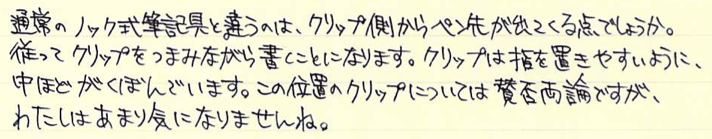 通常のノック式筆記具と違うのは、クリップ側からペン先が出てくる点でしょうか。
従ってクリップをつまみながら書くことになります。クリップは指を置きやすいように、
中ほどがくぼんでいます。この位置のクリップについては賛否両論ですが、
わたしはあまり気になりませんね。